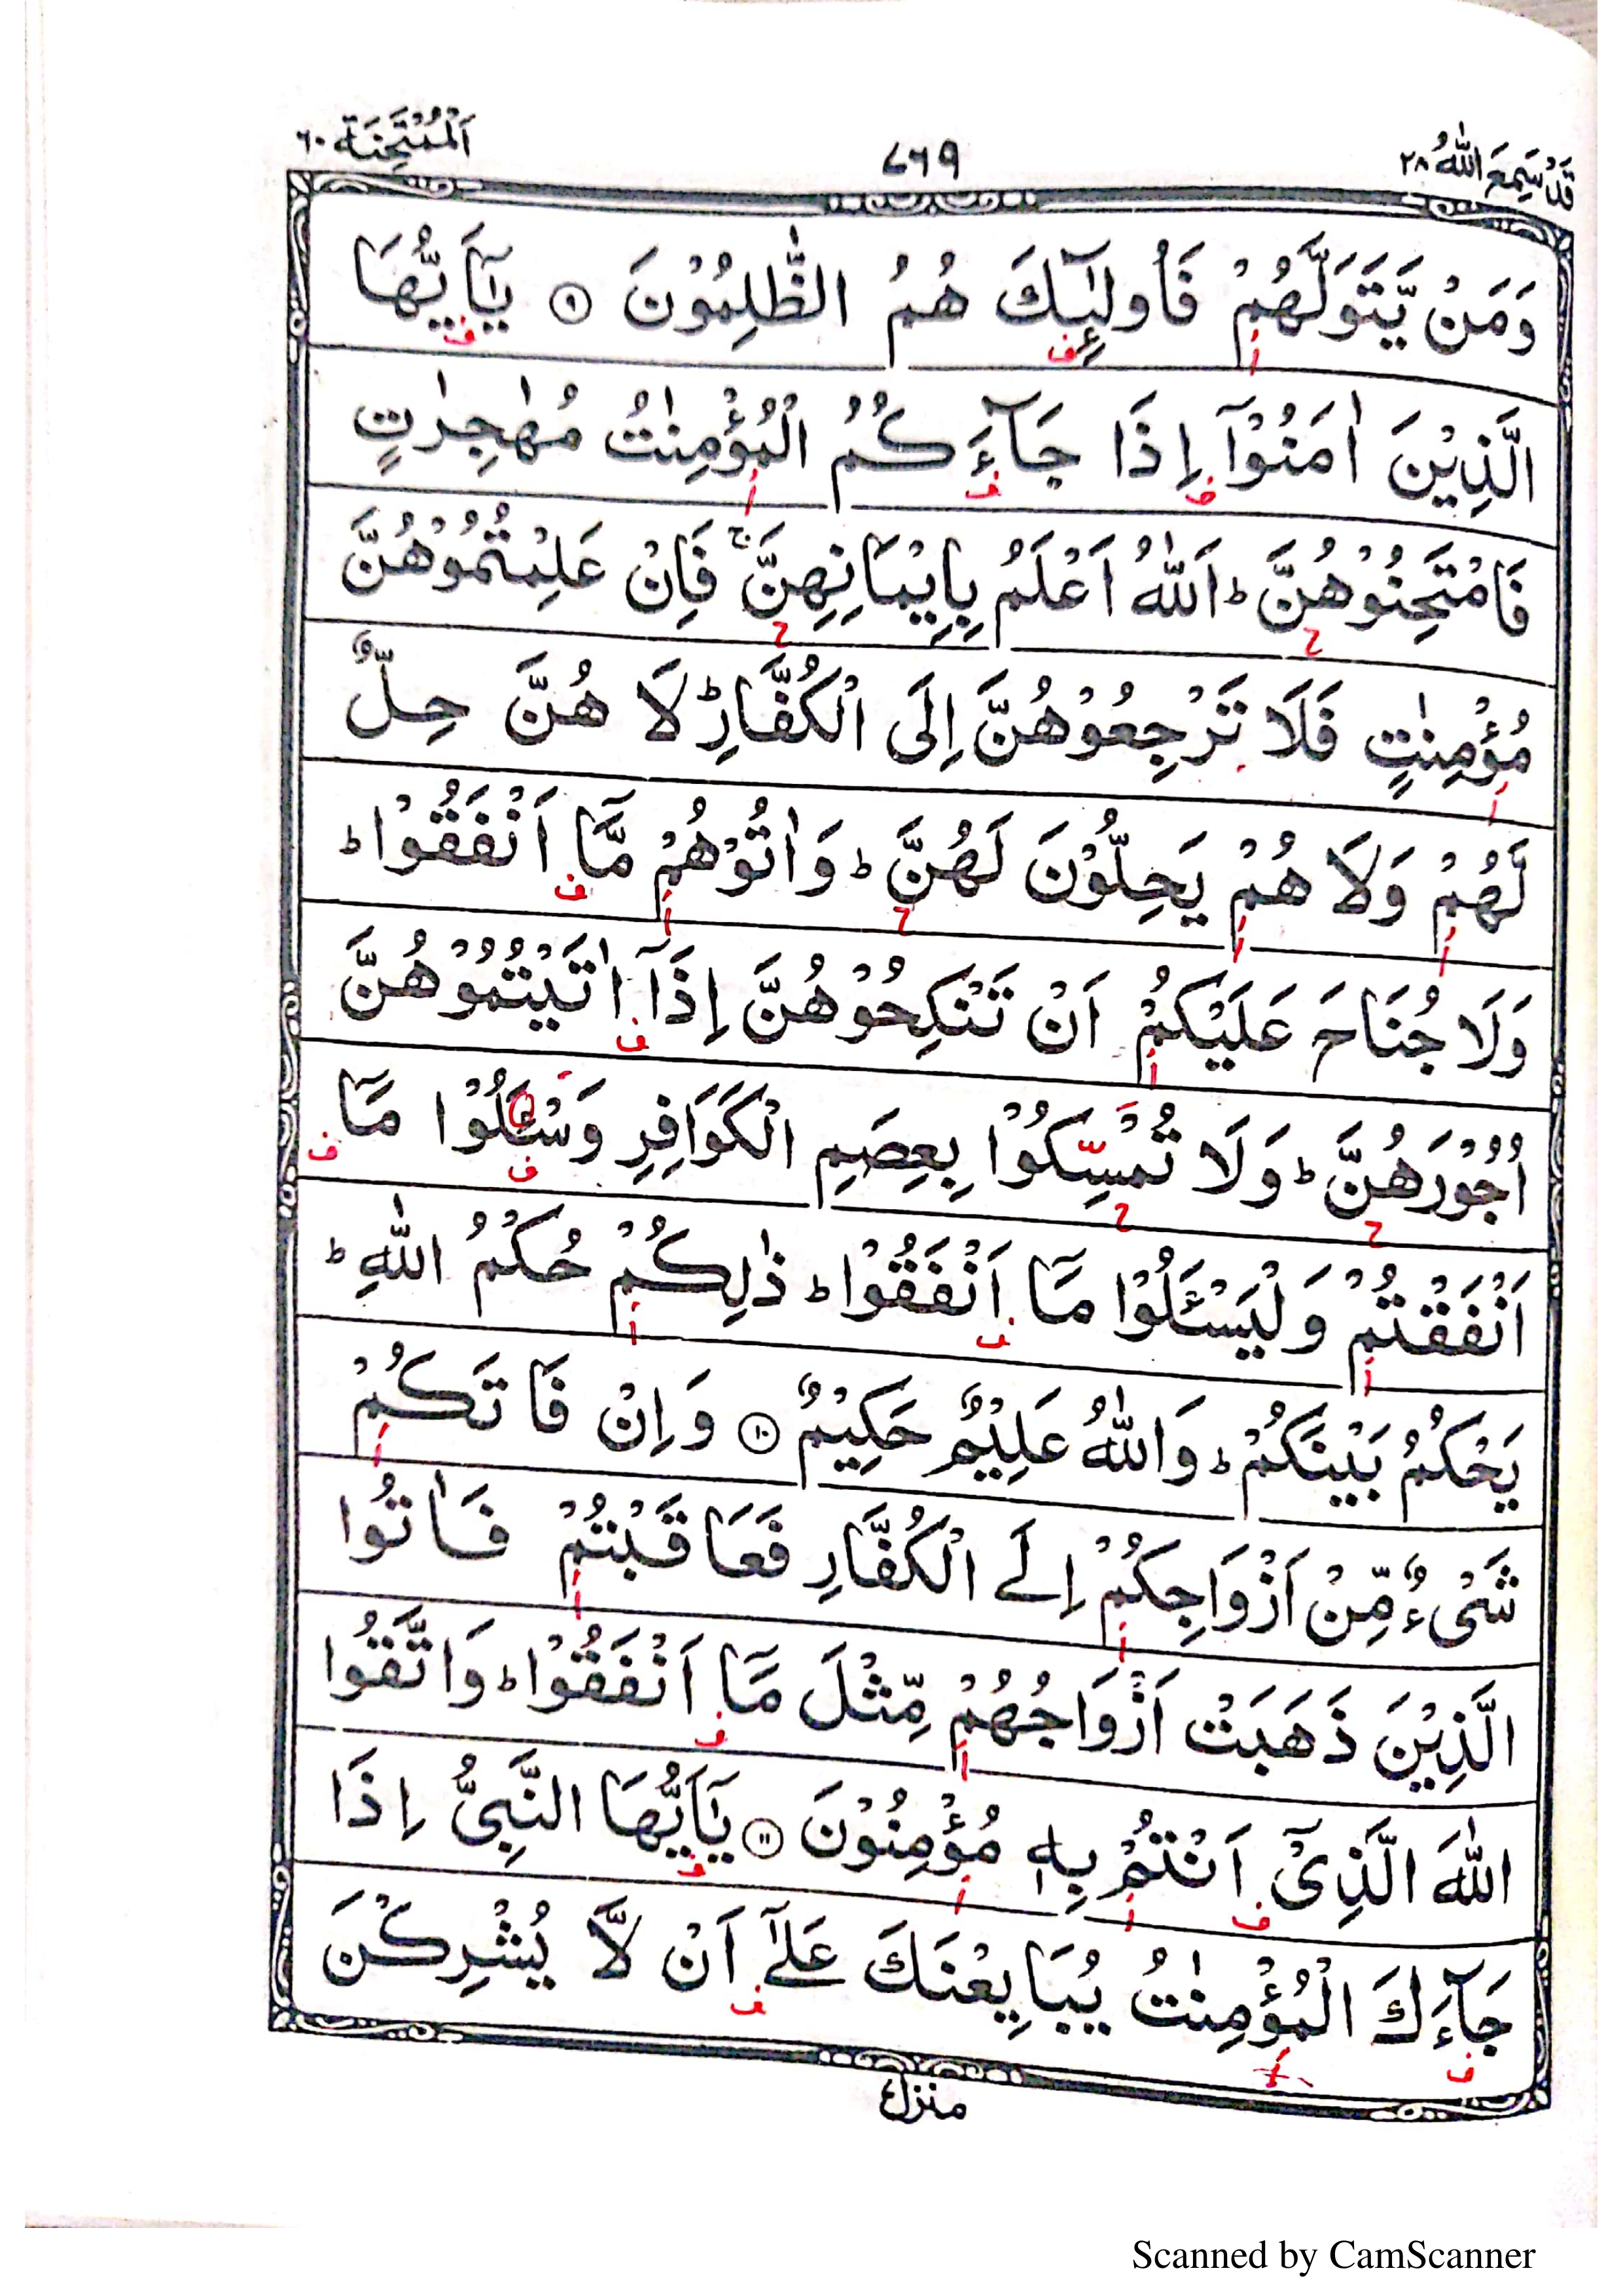 قَدْ سَمِعَ اللّٰهُ ٢٨
٧٦٩
اَلْمُمْتَحِنَة ٦٠
وَمَنْ يَّتَوَلَّهُمْ فَاُولٰٓئِكَ هُمُ الظّٰلِمُوْنَ ۹ يٰٓاَيُّهَا
الَّذِيْنَ اٰمَنُوْٓا اِذَا جَآءَكُمُ الْمُؤْمِنٰتُ مُهٰجِرٰتٍ
فَامْتَحِنُوْهُنَّ ؕ اَللّٰهُ اَعْلَمُ بِاِيْمَانِهِنَّ ۚ فَاِنْ عَلِمْتُمُوْهُنَّ
مُؤْمِنٰتٍ فَلَا تَرْجِعُوْهُنَّ اِلَى الْكُفَّارِ ؕ لَا هُنَّ حِلٌّ
لَّهُمْ وَلَا هُمْ يَحِلُّوْنَ لَهُنَّ ؕ وَاٰتُوْهُمْ مَّآ اَنْفَقُوْا ؕ
وَلَا جُنَاحَ عَلَيْكُمْ اَنْ تَنْكِحُوْهُنَّ اِذَآ اٰتَيْتُمُوْهُنَّ
اُجُوْرَهُنَّ ؕ وَلَا تُمَسِّكُوْا بِعِصَمِ الْكَوَافِرِ وَسْـَٔلُوْا مَآ
اَنْفَقْتُمْ وَلْيَسْـَٔلُوْا مَآ اَنْفَقُوْا ؕ ذٰلِكُمْ حُكْمُ اللّٰهِ ؕ
يَحْكُمُ بَيْنَكُمْ ؕ وَاللّٰهُ عَلِيْمٌ حَكِيْمٌ ۱۰ وَاِنْ فَاتَكُمْ
شَىْءٌ مِّنْ اَزْوَاجِكُمْ اِلَى الْكُفَّارِ فَعَاقَبْتُمْ فَاٰتُوا
الَّذِيْنَ ذَهَبَتْ اَزْوَاجُهُمْ مِّثْلَ مَآ اَنْفَقُوْا ؕ وَاتَّقُوا
اللّٰهَ الَّذِىْٓ اَنْتُمْ بِهٖ مُؤْمِنُوْنَ ۱۱ يٰٓاَيُّهَا النَّبِىُّ اِذَا
جَآءَكَ الْمُؤْمِنٰتُ يُبَايِعْنَكَ عَلٰٓى اَنْ لَّا يُشْرِكْنَ
منزل
Scanned by CamScanner